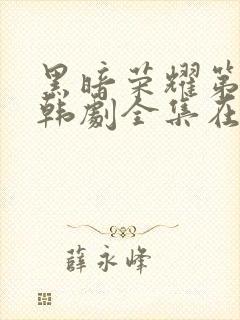 黑暗荣耀第
韩剧全集在
薛永峰